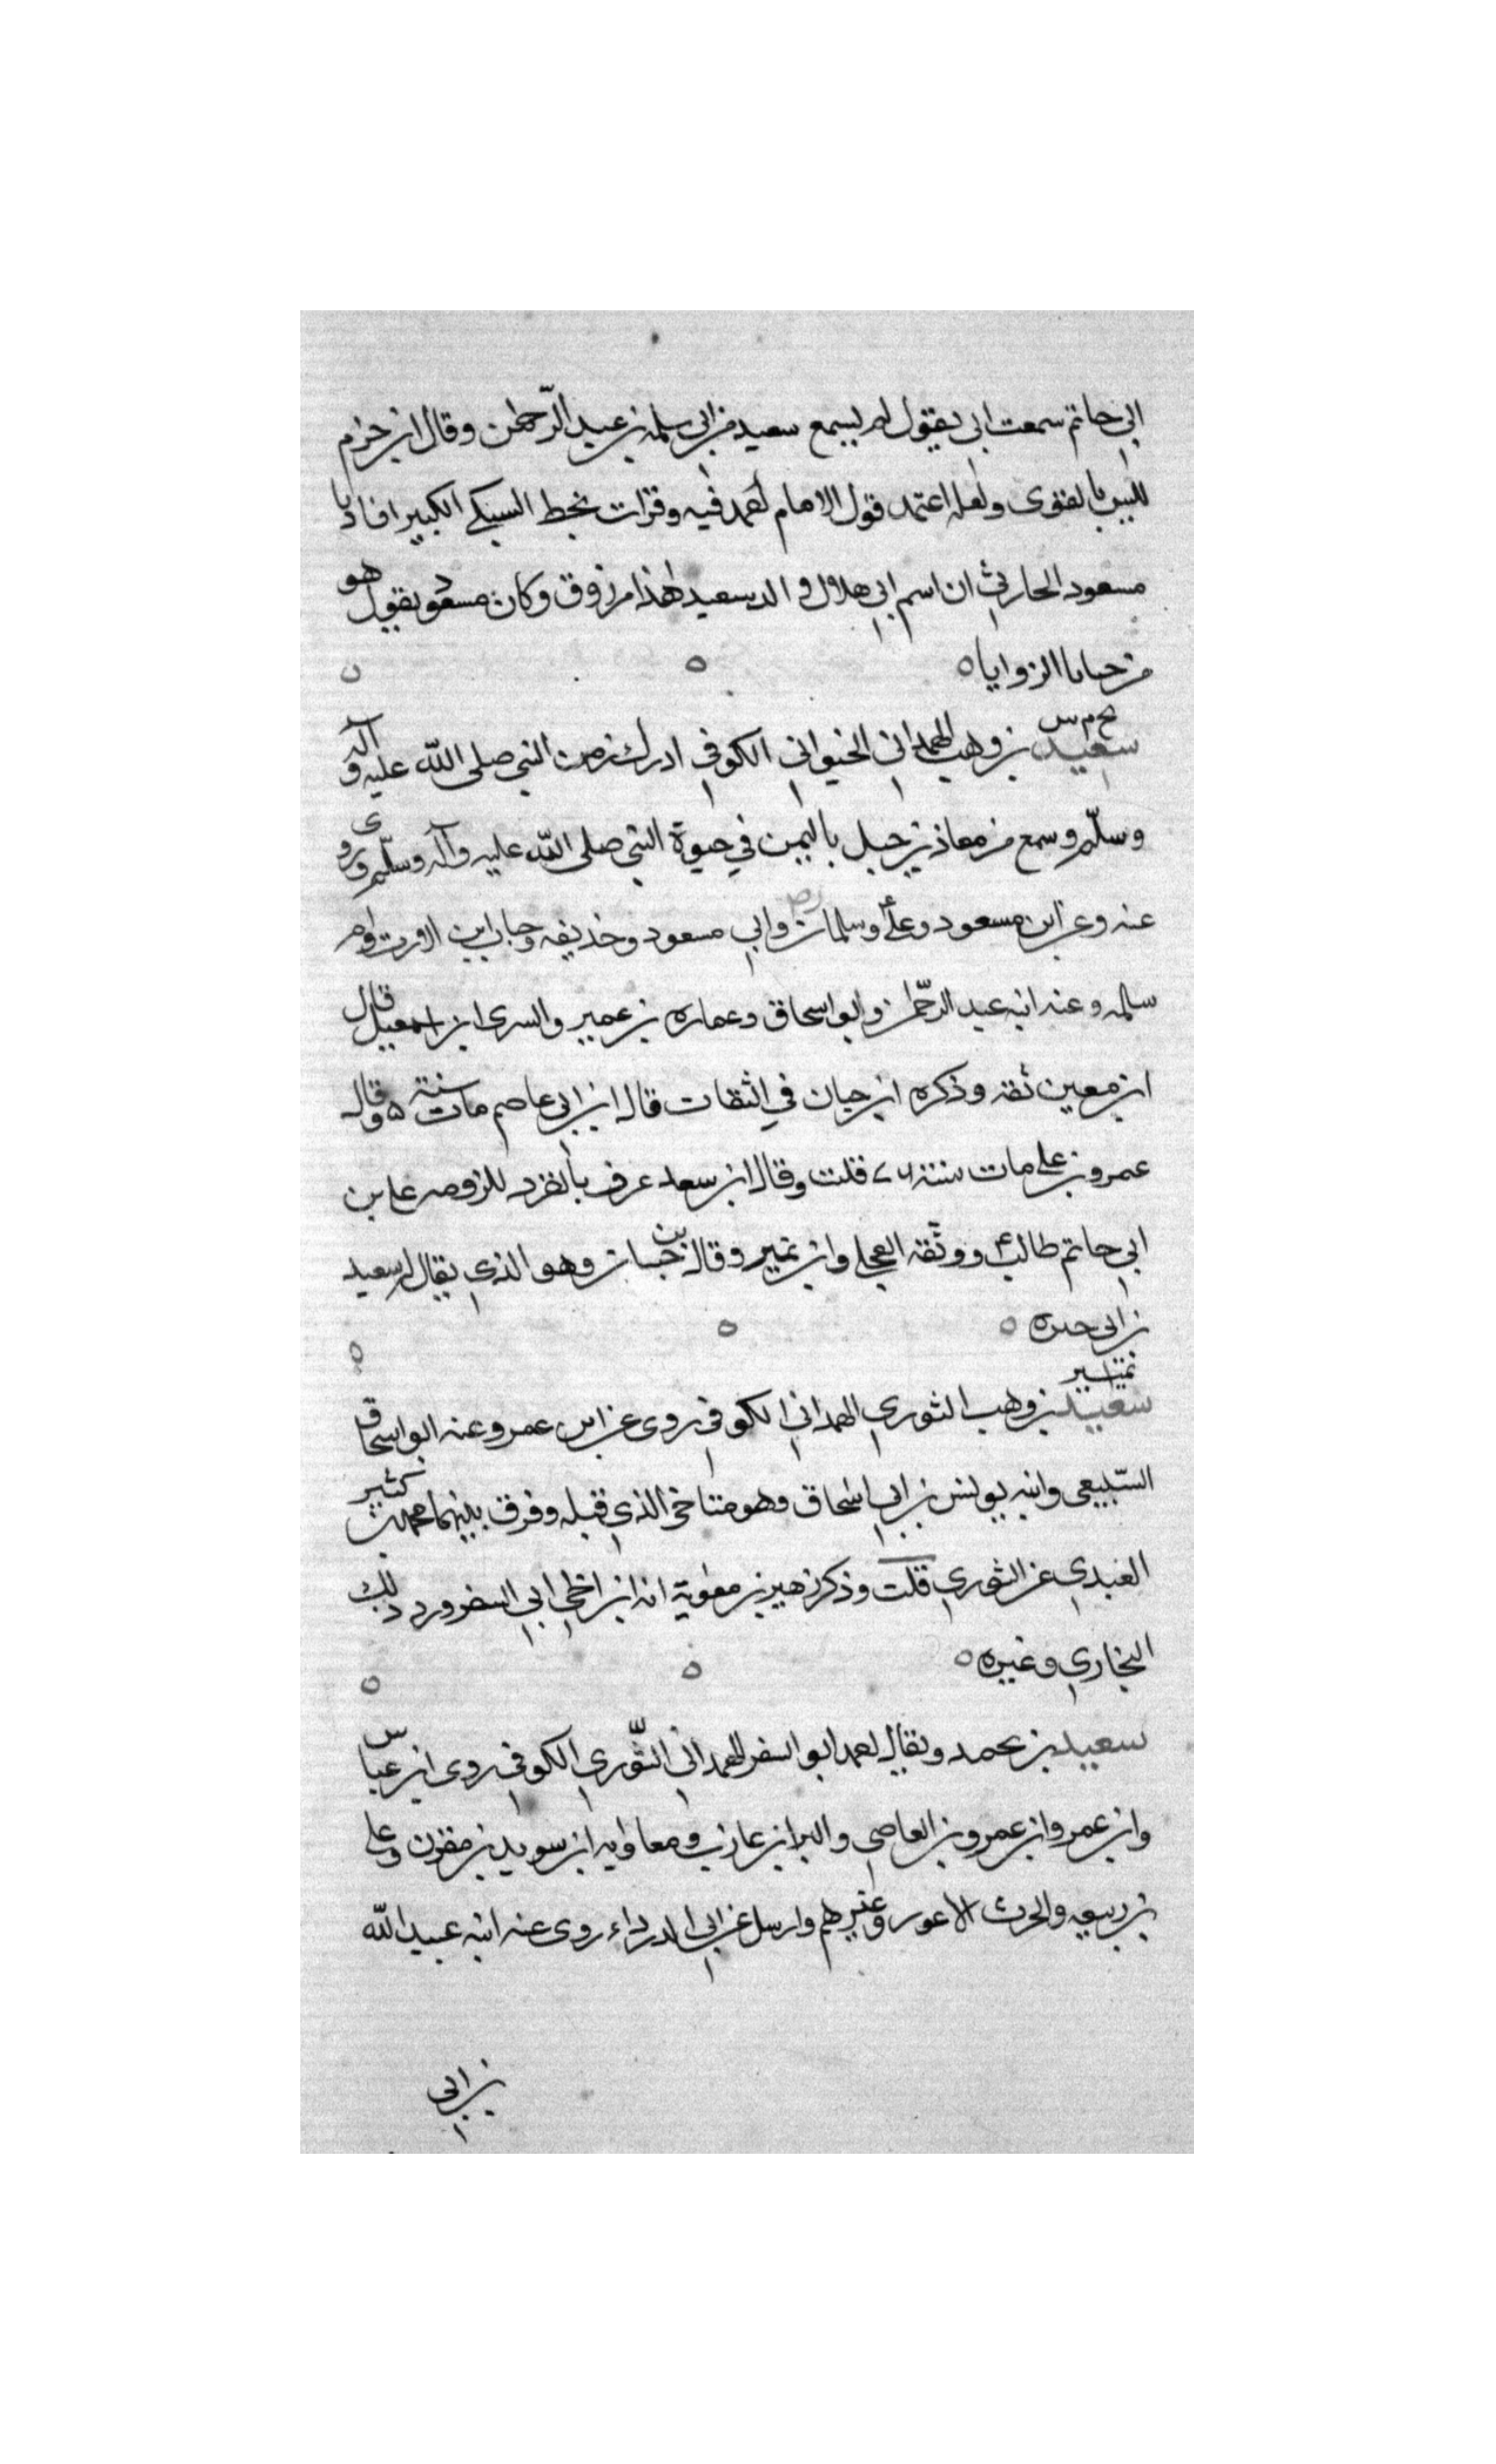 ابي حاتم سمعت ابي يقول لم يسمع سعيد من ابي سلمة بن عبد الرّحمٰن وقال ابن حزم
ليس بالقوى ولعله اعتمد قول الامام احمد فيه وقرات بخط السبكي الكبير افادنا
مسعود الحارثي ان اسم ابي هلال والد سعيد هٰذا مرزوق وكان مسعود يقول هو
من خبايا الزوايا ه
خ م س
سعيد بن وهب الهمداني الخيواني الكوفي ادرك زمن النبي صلى الله عليه و آله
وسلّم وسمع من معاذ بن جبل باليمن في حيوة النبي صلى الله عليه وآله وسلّم وروى
عنه وعن ابن مسعود وعلى وسلمان وابي مسعود وحذيفه وخباب ابن الارت وام
سلمه وعنه ابنه عبد الرّحمن وابو اسحاق وعماره بن عمير والسرى ابن اسمعيل قال
ابن معين ثقه وذكره ابن حبان في الثقات قال ابن ابي عاصم مات سنة وقال
عمرو بن على مات سنة قلت وقال ابن سعد عرف بالقرد للزومه على بن
ابي حاتم طالب ووثّقه العجلى وابن نمير وقال بن حبان وهو الذي يقال له سعيد
بن ابي حره ه
تمييز
سعيد بن وهب الثوري الهمداني الكوفي روى عن ابن عمر وعنه ابو اسحاق
السّبيعي وابنه يونس بن ابي اسحاق وهو متاخر الذي قبله وفرق بينهما محمد بن كثير
العبدي عن الثوري قلت وذكر زهير بن معٰوية انه ابن اخى ابي السفر ورد ذلك
البخاري وغيره ه
سعيد بن محمد ويقال احمد ابو السفر الهمداني الثّوري الكوفي روى ابن عباس
وابن عمر وابن عمرو بن العاصي والبرا بن عازب ومعاويه ابن سويد بن مقرن وعلى
بن ربيعه والحرث الاعور وغيرهم وارسل عن ابي الدرداء روى عنه ابنه عبد الله
بن ابي